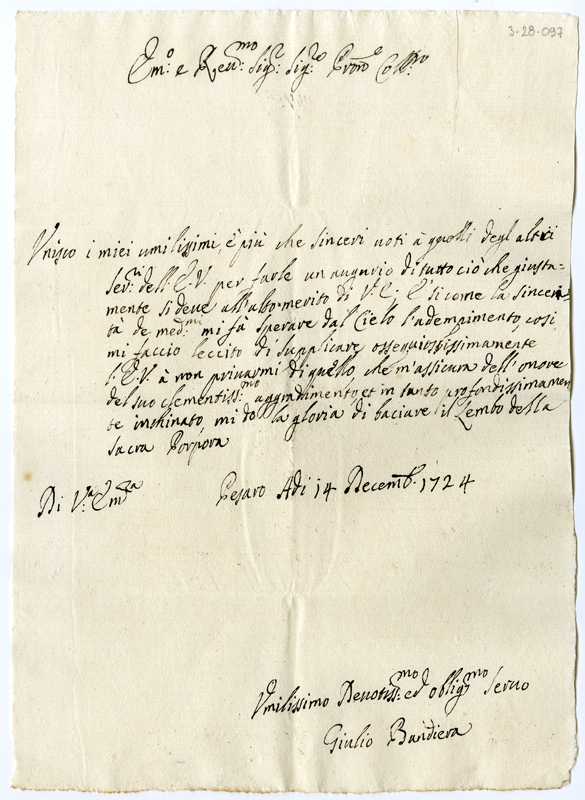 3-28-097
Em:o e Reu:mo Sig:r Sig:re Pron:e Coll:mo
Vnisco i miei umilissimi, è più che sinceri uoti à quelli degl altri
Ser:ri dell'E.V. per farle un augurio di tutto ciò che giusta-
mente si deue all'alto merito di V:E: E sicome la sinceri-
tà de med:mi mi fà sperare dal Cielo l'adempimento, così
mi faccio leccito di supplicare ossequiosissimamente
l'E.V. à non priuarmi di quello che m'assicura dell'onore
del suo clementiss:mo aggradimento, et in tanto profondissimamen
te inchinato, mi dò la gloria di baciare il Lembo della
Sacra Porpora
Di V:a Em:za Pesaro Adi 14 Decemb. 1724
Vmilissimo Deuotiss:mo ed oblig:mo Seruo
Giulio Bandiera